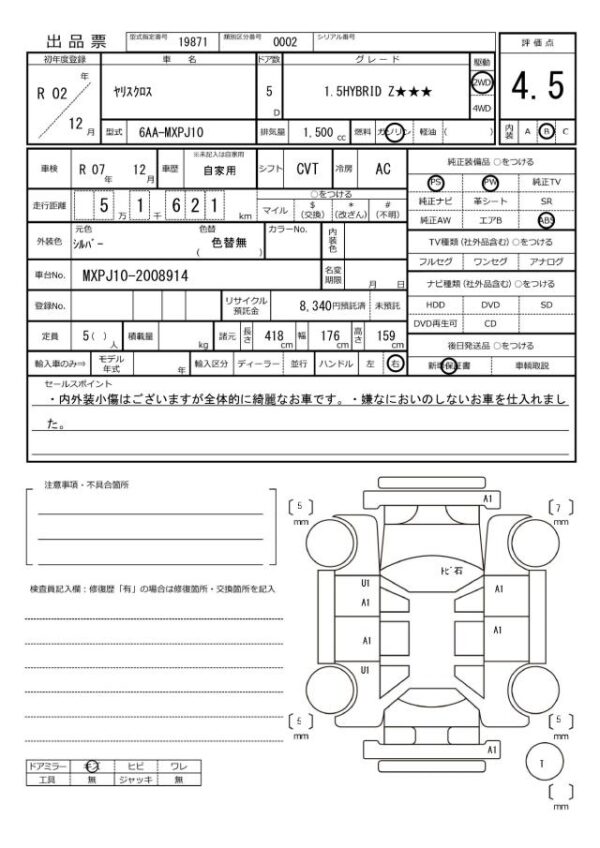 出品票 型式指定番号 19871 類別区分番号 0002 シリアル番号
評価点
4.5
初年度登録 車名 ドア数 グレード 駆動
R 02 年 12 月
ヤリスクロス
5 D
1.5HYBRID Z★★★
2WD
4WD
型式 6AA-MXPJ10 排気量 1,500 cc 燃料 ガソリン 軽油 ( )
内装 A B C
車検 R 07 年 12 月 車歴 ※未記入は自家用 自家用 シフト CVT 冷房 AC
走行距離 5 万 1 千 6 2 1 km
○をつける
マイル $ (交換) * (改ざん) # (不明)
外装色 元色 シルバー 色替 色替無 ( ) カラーNo. 内装色
車台No. MXPJ10-2008914 名変期限 月 日
登録No. リサイクル預託金 8,340円預託済 未預託
定員 5( ) 人 積載量 kg 諸元 長さ 418 cm 幅 176 cm 高さ 159 cm
輸入車のみ⇒ モデル年式 年 輸入区分 ディーラー 並行 ハンドル 左 右
純正装備品 ○をつける
PS PW 純正TV
純正ナビ 革シート SR
純正AW エアB ABS
TV種類 (社外品含む) ○をつける
フルセグ ワンセグ アナログ
ナビ種類 (社外品含む) ○をつける
HDD DVD SD
DVD再生可 CD
後日発送品 ○をつける
新車保証書 車輌取説
セールスポイント
・内外装小傷はございますが全体的に綺麗なお車です。・嫌なにおいのしないお車を仕入れまし
た。
注意事項・不具合箇所
検査員記入欄：修復歴「有」の場合は修復箇所・交換箇所を記入
ドアミラー キズ ヒビ ワレ
工具 無 ジャッキ 無
5 mm
A1
7 mm
トビ石
U1
A1
A1
A1
A1
U1
5 mm
A1
5 mm
T
mm